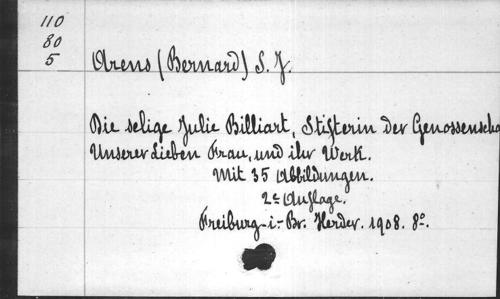 110
80
5
Arens (Bernard) S. J.
Die selige Julie Billiart, Stifterin der Genossenscha
Unserer Lieben Frau, und ihr Werk.
Mit 35 Abbildungen.
2e Auflage.
Freiburg-i-Br. Herder. 1908. 8o.